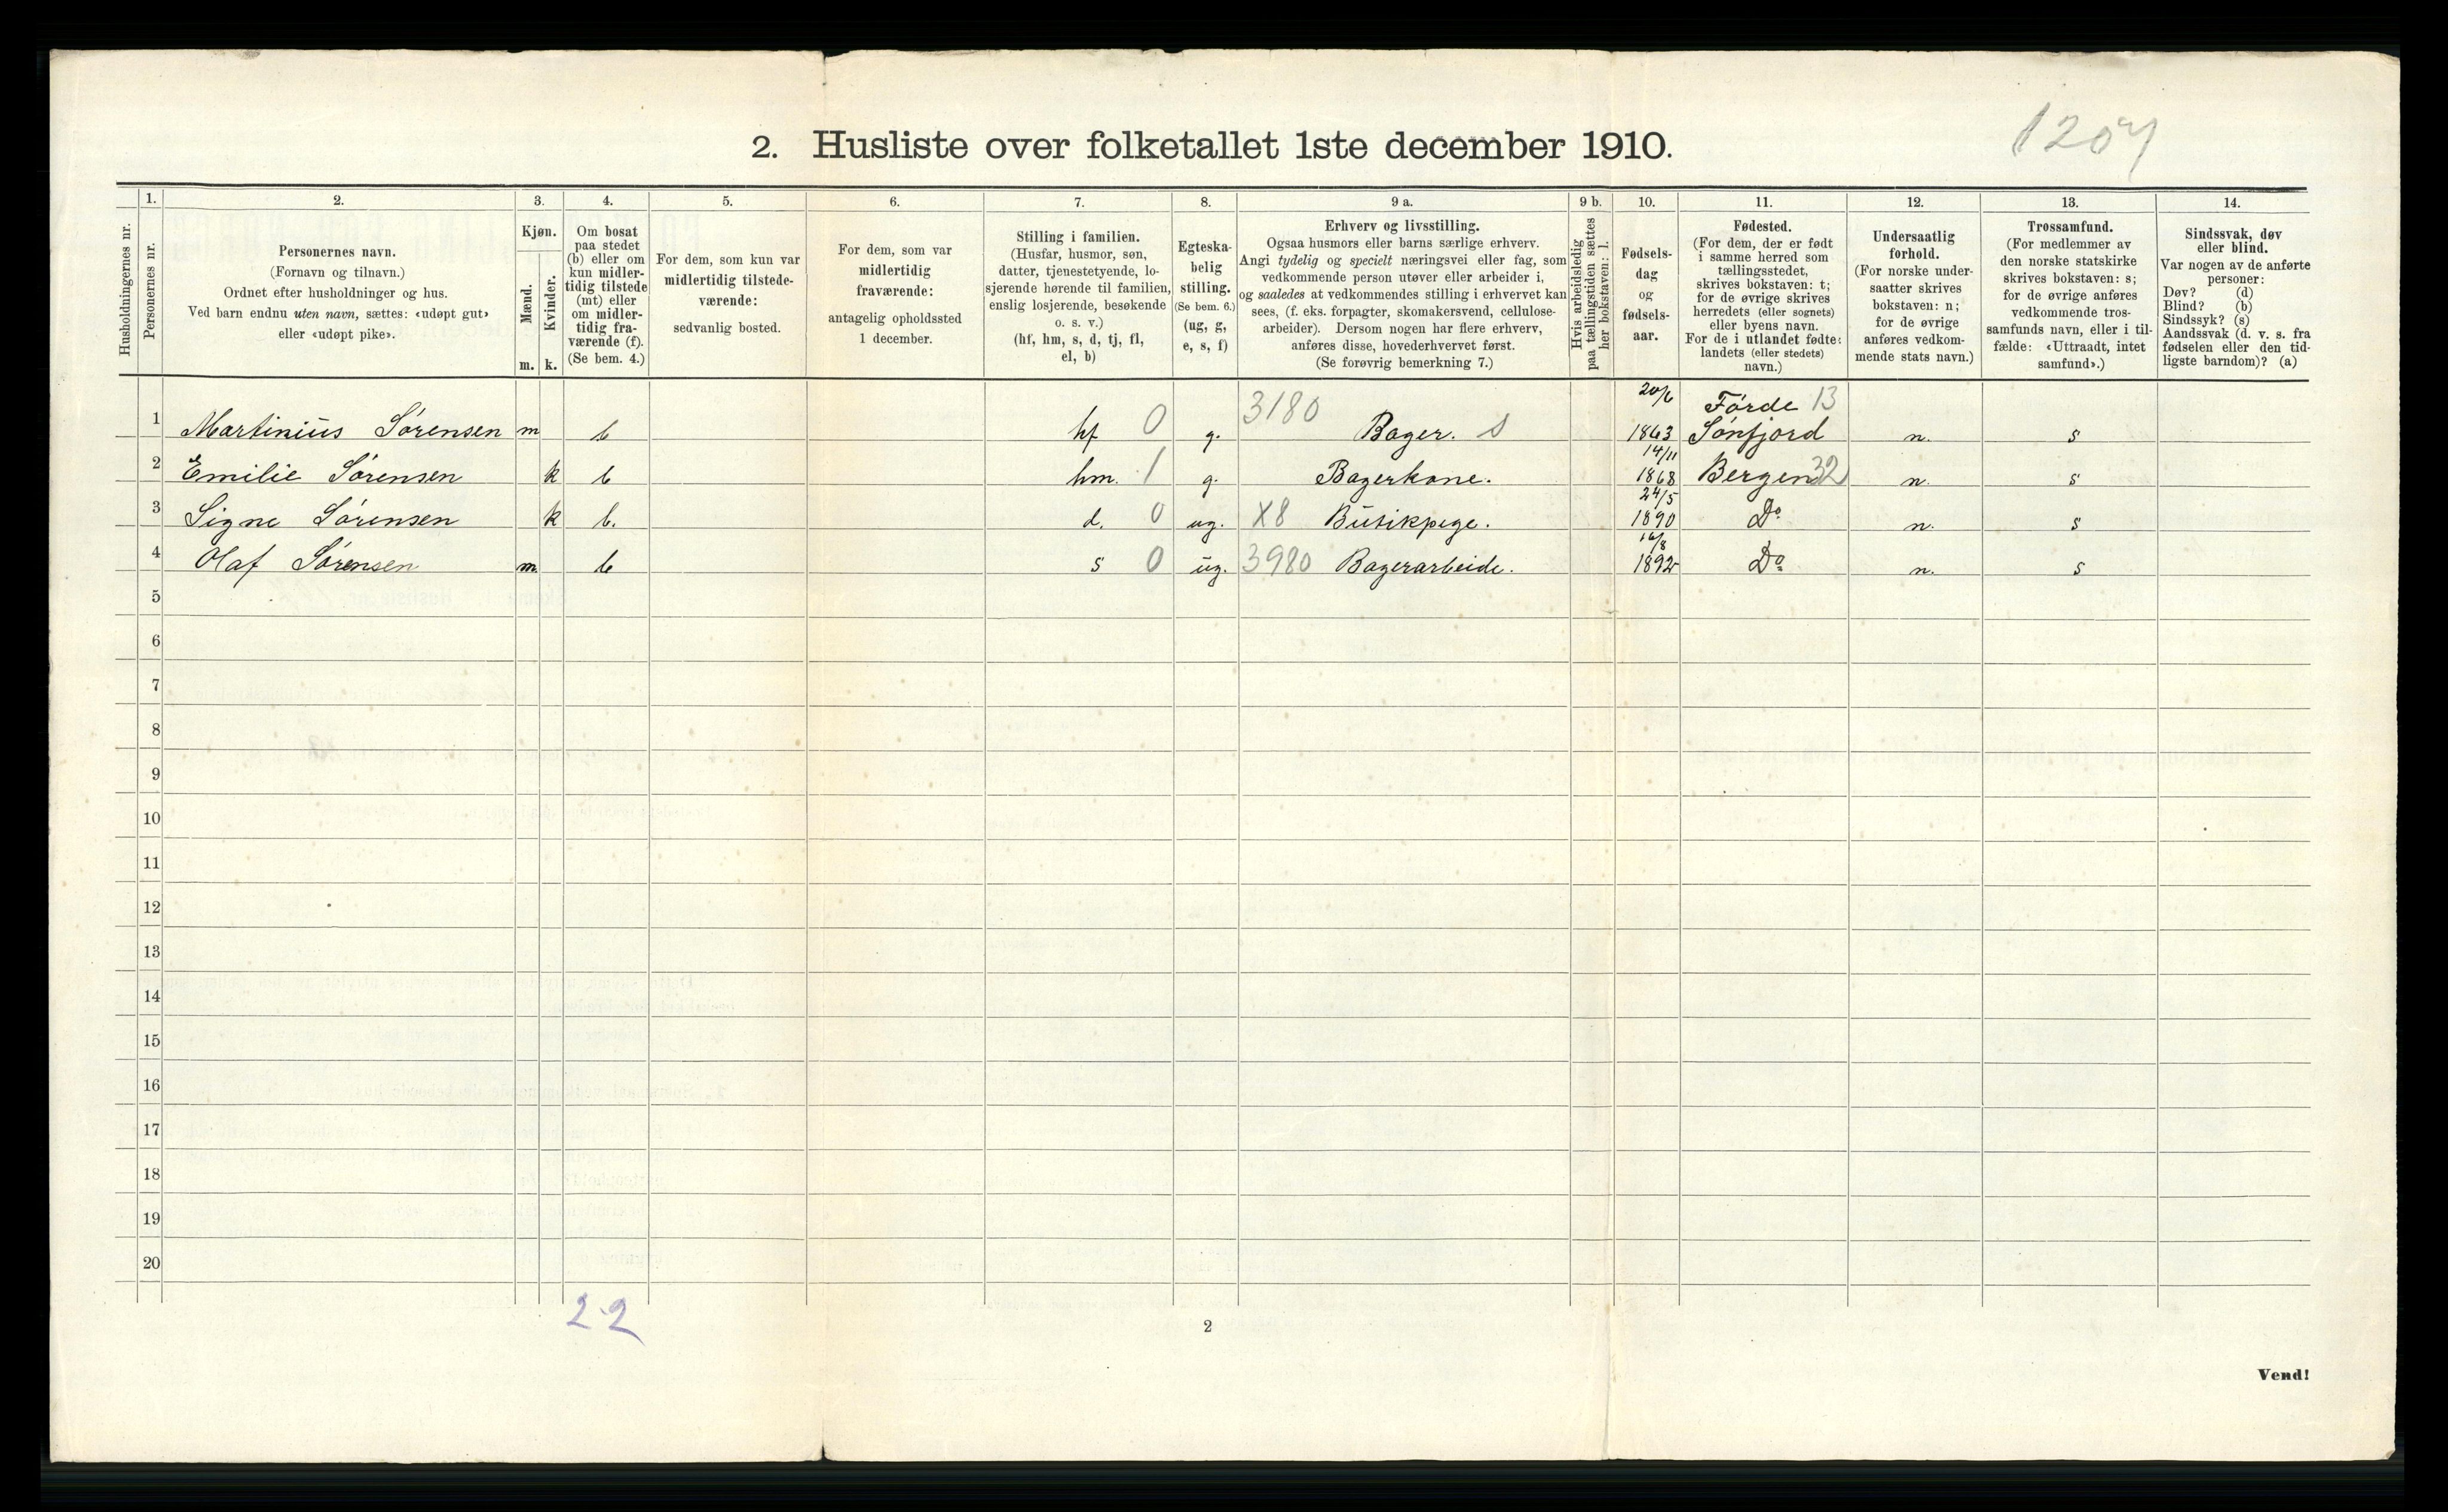 1207
2. Husliste over folketallet 1ste december 1910.
Husholdningernes nr.
1.
Personernes nr.
2.
Personernes navn.
(Fornavn og tilnavn.)
Ordnet efter husholdninger og hus.
Ved barn endnu uten navn, sættes: «udøpt gut»
eller «udøpt pike».
3.
Kjøn.
Mænd.
m.
Kvinder.
k.
4.
Om bosat
paa stedet
(b) eller om
kun midler-
tidig tilstede
(mt) eller
om midler-
tidig fra-
værende (f).
(Se bem. 4.)
5.
For dem, som kun var
midlertidig tilstede-
værende:
sedvanlig bosted.
6.
For dem, som var
midlertidig
fraværende:
antagelig opholdssted
1 december.
7.
Stilling i familien.
(Husfar, husmor, søn,
datter, tjenestetyende, lo-
sjerende hørende til familien,
enslig losjerende, besøkende
o. s. v.)
(hf, hm, s, d, tj, fl,
el, b)
8.
Egteska-
belig
stilling.
(Se bem. 6.)
(ug, g,
e, s, f)
9 a.
Erhverv og livsstilling.
Ogsaa husmors eller barns særlige erhverv.
Angi tydelig og specielt næringsvei eller fag, som
vedkommende person utøver eller arbeider i,
og saaledes at vedkommendes stilling i erhvervet kan
sees, (f. eks. forpagter, skomakersvend, cellulose-
arbeider). Dersom nogen har flere erhverv,
anføres disse, hovederhvervet først.
(Se forøvrig bemerkning 7.)
9 b.
Hvis arbeidsledig
paa tællingstiden sættes
her bokstaven: l.
10.
Fødsels-
dag
og
fødsels-
aar.
11.
Fødested.
(For dem, der er født
i samme herred som
tællingsstedet,
skrives bokstaven: t;
for de øvrige skrives
herredets (eller sognets)
eller byens navn.
For de i utlandet fødte:
landets (eller stedets)
navn.)
12.
Undersaatlig
forhold.
(For norske under-
saatter skrives
bokstaven: n;
for de øvrige
anføres vedkom-
mende stats navn.)
13.
Trossamfund.
(For medlemmer av
den norske statskirke
skrives bokstaven: s;
for de øvrige anføres
vedkommende tros-
samfunds navn, eller i til-
fælde: «Uttraadt, intet
samfund».)
14.
Sindssvak, døv
eller blind.
Var nogen av de anførte
personer:
Døv? (d)
Blind? (b)
Sindssyk? (s)
Aandssvak (d. v. s. fra
fødselen eller den tid-
ligste barndom)? (a)
20/6 Førde 13
1 Martinius Sørensen m b hf 0 g. 3180 Bager. s 1863 Sønfjord n. s
14/11
2 Emilie Sørensen k b hm. 1 g. Bagerkone. 1868 Bergen 32 n. s
24/5
3 Signe Sørensen k b. d. 0 ug. X8 Butikpige. 1890 Do n. s
16/8
4 Olaf Sørensen m. b s 0 ug. 3980 Bagerarbeide. 1892 Do n. s
5
6
7
8
9
10
11
12
13
14
15
16
17
18
19
20
2-2
2
Vend!